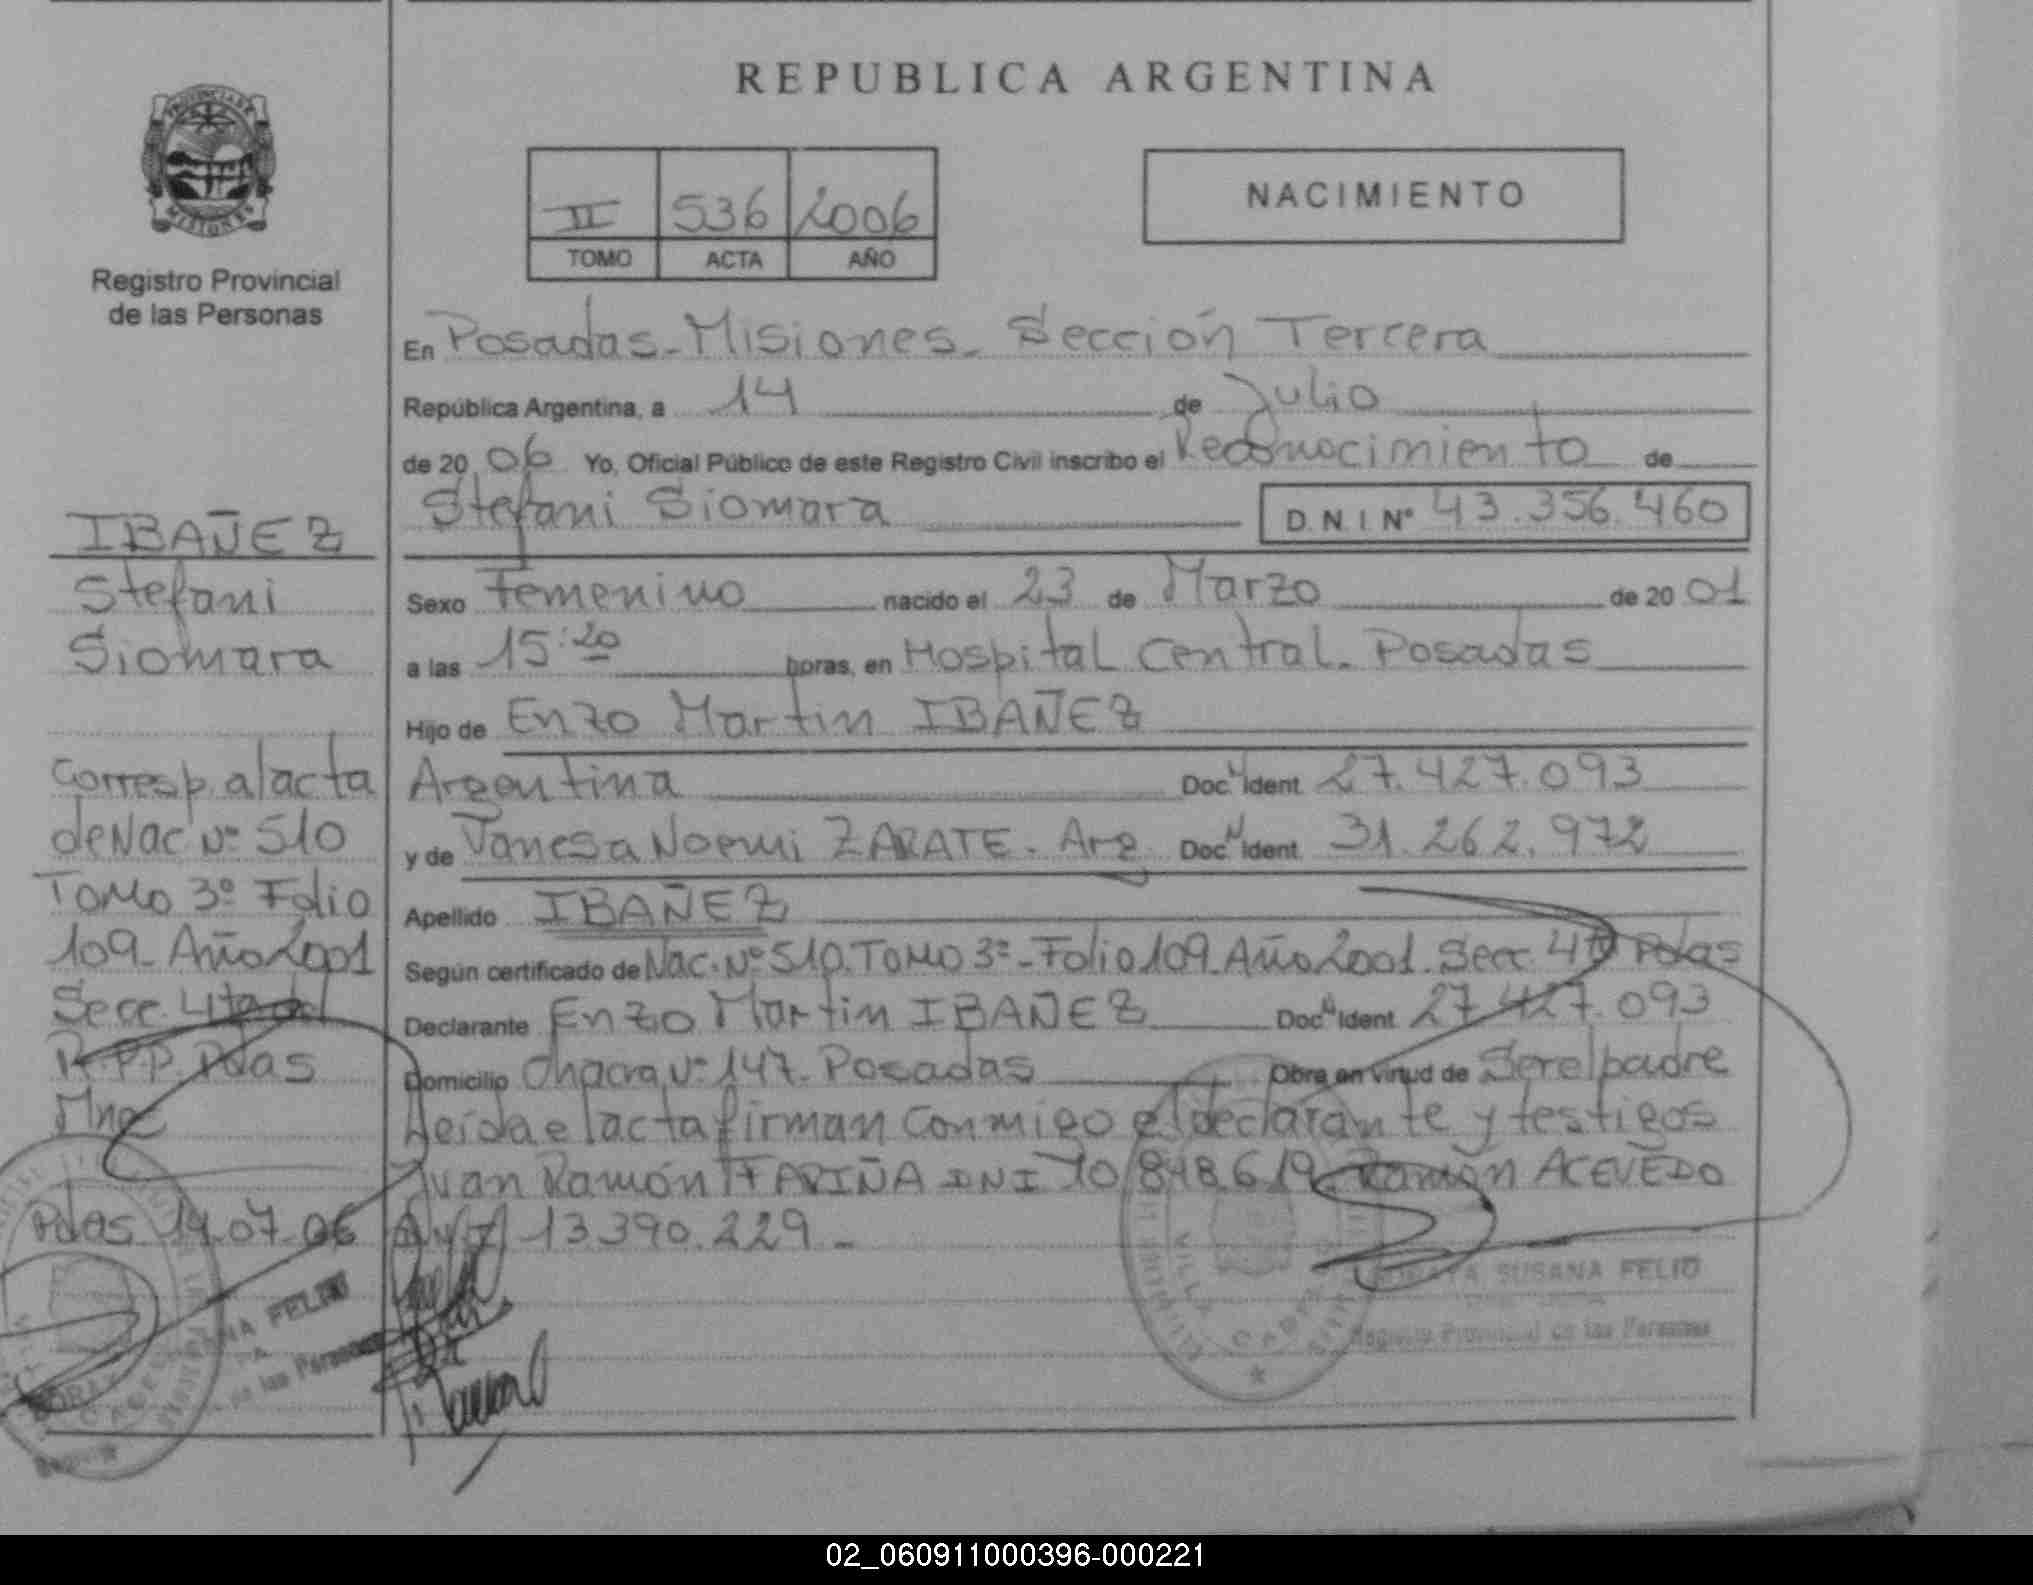 REPUBLICA ARGENTINA
PROVINCIA DE
MISIONES
Registro Provincial
de las Personas
II 536 2006
TOMO ACTA AÑO
NACIMIENTO
En Posadas - Misiones - Sección Tercera
República Argentina, a 14 de Julio
de 20 06 Yo, Oficial Público de este Registro Civil inscribo el Reconocimiento de
Stefani Siomara D.N.I. Nº 43.356.460
Sexo Femenino nacido el 23 de Marzo de 20 01
a las 15:20 horas, en Hospital Central. Posadas
Hijo de Enzo Martin IBAÑEZ
Argentina Doc. Ident. 27.427.093
y de Vanesa Noemi ZARATE. Arg. Doc. Ident. 31.262.972
Apellido IBAÑEZ
Según certificado de Nac. Nº 510. TOMO 3º - Folio 109. Año 2001. Secc. 4ta Pdas
Declarante Enzo Martin IBAÑEZ Doc. Ident. 27.427.093
Domicilio Chacra Nº 147. Posadas Obra en virtud de Ser el padre
Leída el acta firman conmigo el declarante y testigos
Juan Ramón FARIÑA DNI 10.848.619. Ramón ACEVEDO
13.390.229 -
SUSANA FELIO
Registro Provincial de las Personas
IBAÑEZ
Stefani
Siomara
Corresp. a/acta
de Nac Nº 510
TOMO 3º Folio
109 - Año 2001
Secc. 4ta del
R.P.P. Pdas
Mnes
Pdas 14.07.06
FELIO
de las Personas
02_060911000396-000221